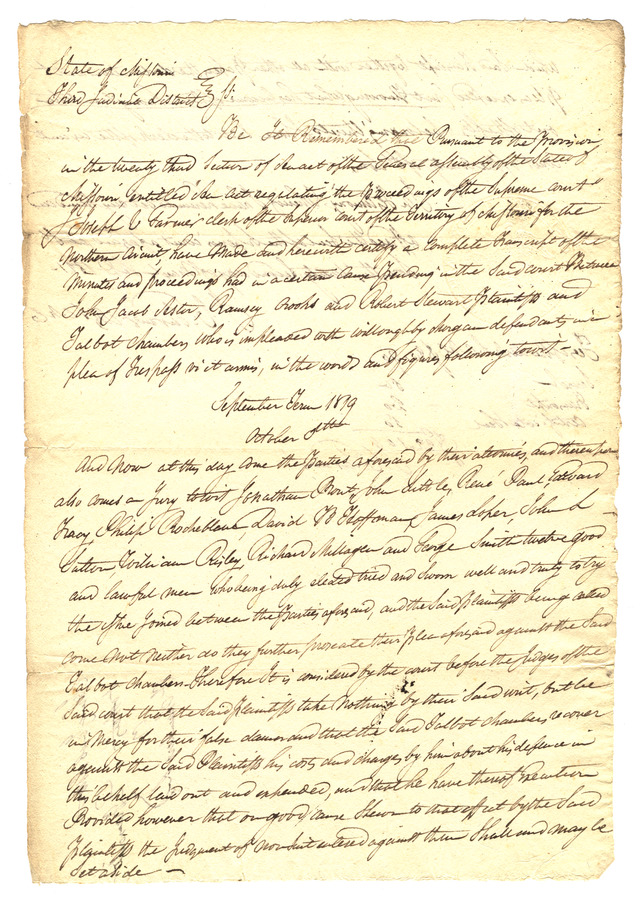 State of Missouri
Third Judicial District } ss:
Be It Remembered that Pursuant to the Provision
in the twenty third Section of An act of the General assembly of the State of
Missouri, entitled An Act regulating the Proceedings of the Supreme court
I Joseph C Farmer clerk of the Superior court of the Territory of Missouri for the
Northern Circuit, have Made and herewith certify a complete Transcript of the
Minutes and proceedings had in a certain Cause Pending in the Said court Between
John Jacob Astor, Ramsey Crooks and Robert Stewart Plaintiffs and
Talbot Chambers who is impleaded with willoughby Morgan defendants, in a
plea of Trespass vi et armis, in the words and figures following towit —
September Term 1819
October
And Now at this day come the Parties aforesaid by their attornies, and thereupon
also comes a Jury towit Jonathan John Rene Paul Edward
Tracy, Philip Rocheblave, David B Hoffman, James John L
Sutton, William Risley, Richard Milligan and George Smith twelve good
and lawful men who being duly elected tried and Sworn well and truly to try
the issue Joined between the Parties aforesaid, and the Said Plaintiffs being called
come not neither do they further prosecute their Plea aforesaid against the Said
Talbot chambers Therefore It is considered by the court before the Judges of the
Said court that the Said Plaintiffs take nothing by their Said writ, but be
in Mercy for their false clamor and that the Said Talbot chambers recover
against the Said Plaintiffs his costs and charges by him about his defence in
this behalf laid out and expended, and that he have thereof Execution
Provided however that on good cause Shewn to that effect by the Said
Plaintiffs the Judgment of non suit entered against them Shall and may be
Set aside —